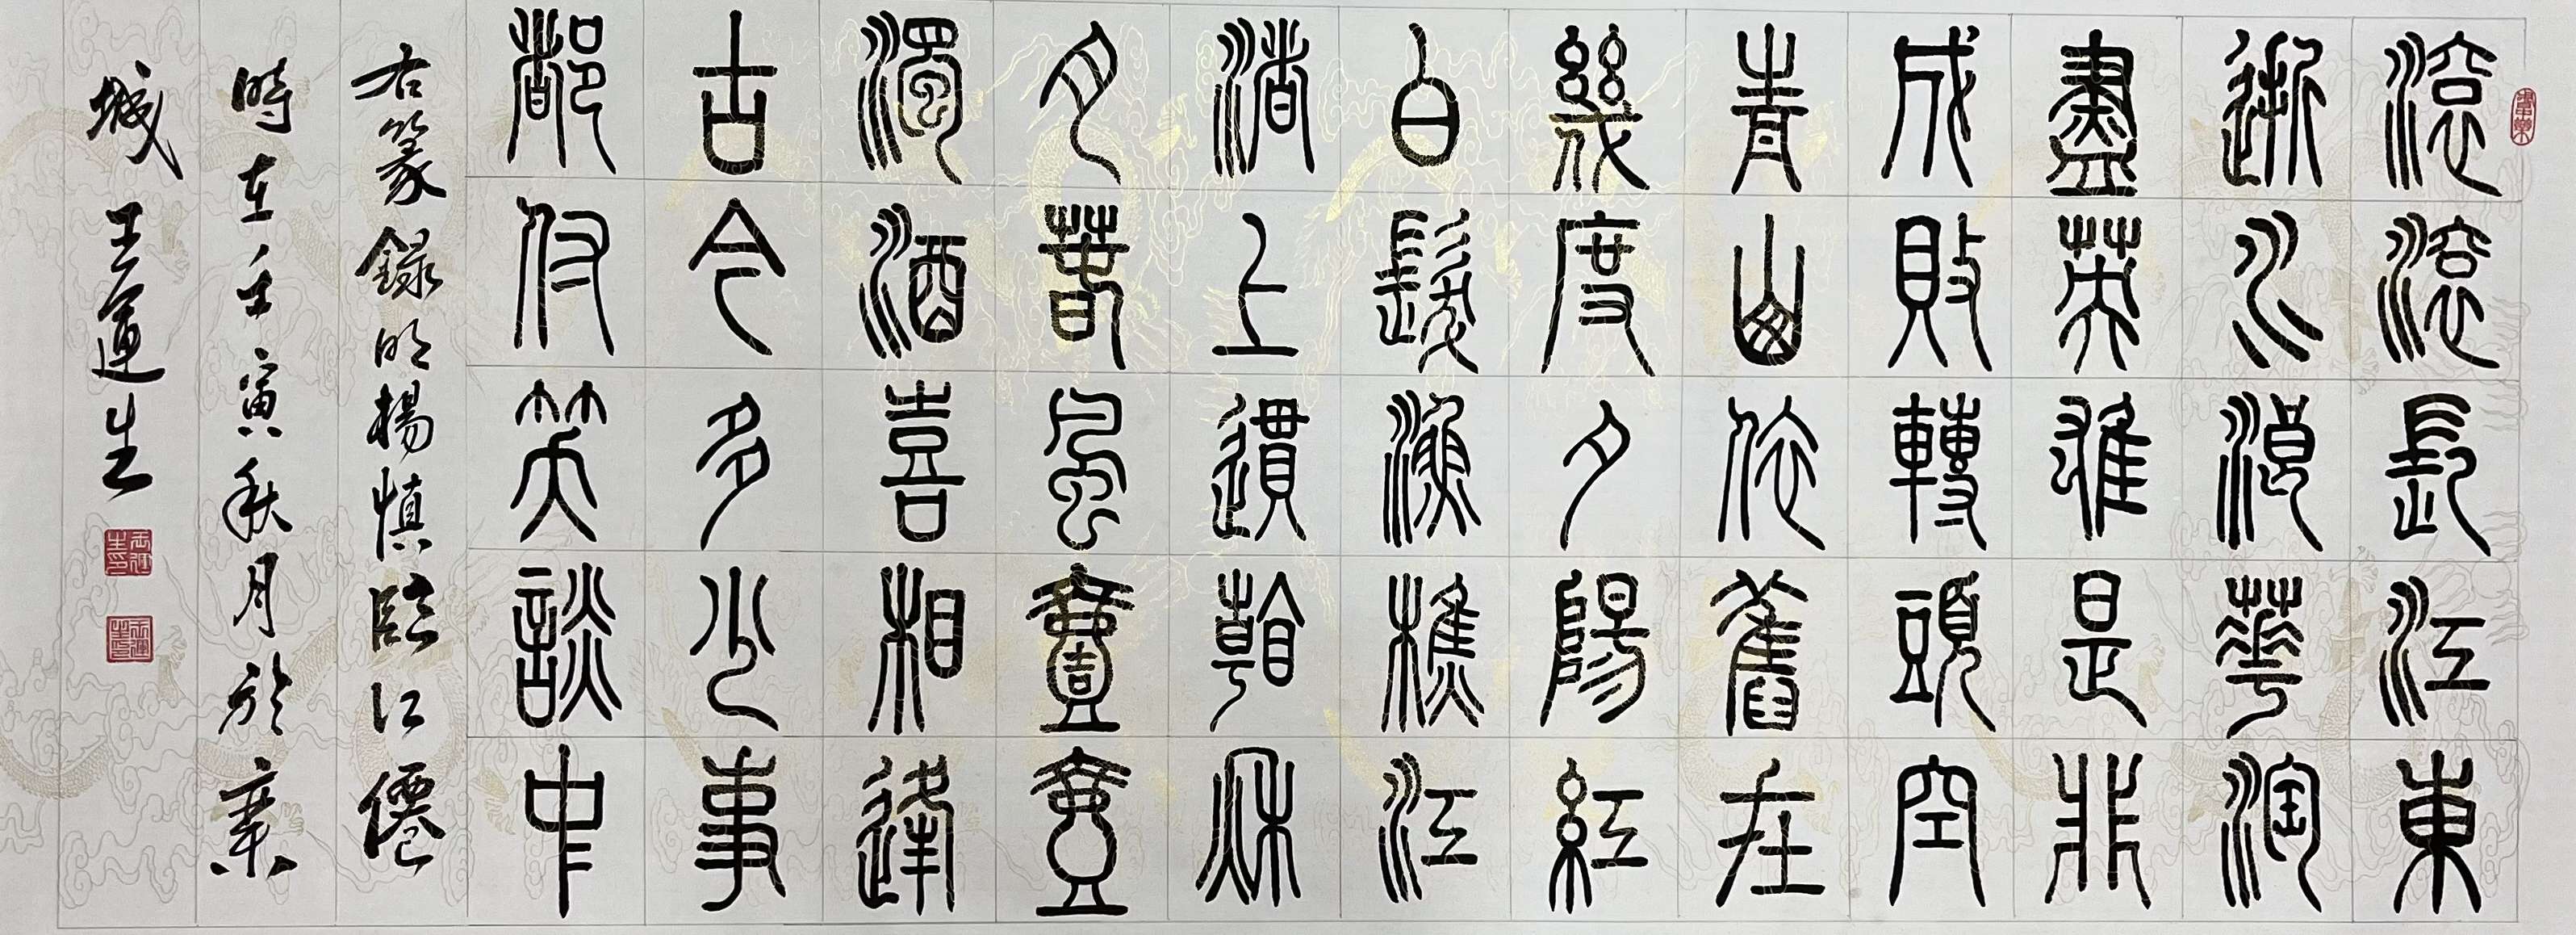 滾滾長江東
逝水浪華淘
盡英雄是非
成敗轉頭空
青山依舊在
幾度夕陽紅
白髮漁樵江
渚上遦看秋
月春風壹壺
濁酒喜相逢
古今多少事
都付笑談中
右篆錄明楊慎臨江僊
時在壬寅秋月於
城 王運生